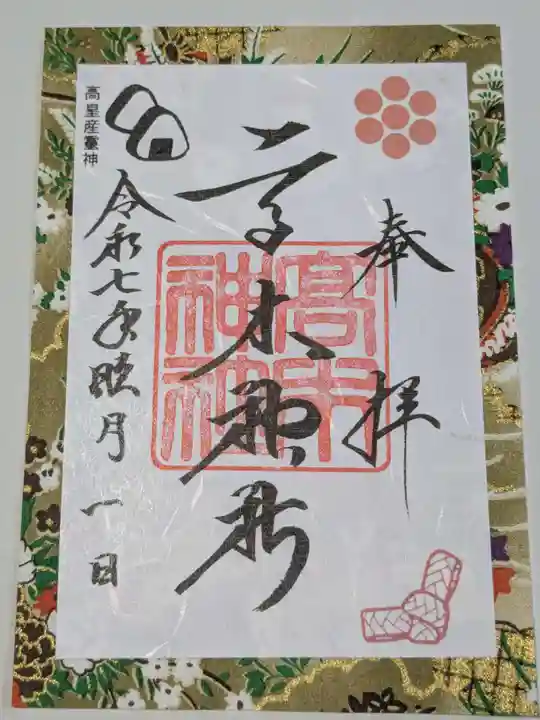 奉拝
高木神社
高木神社
高皇産霊神
令和七年睦月一日